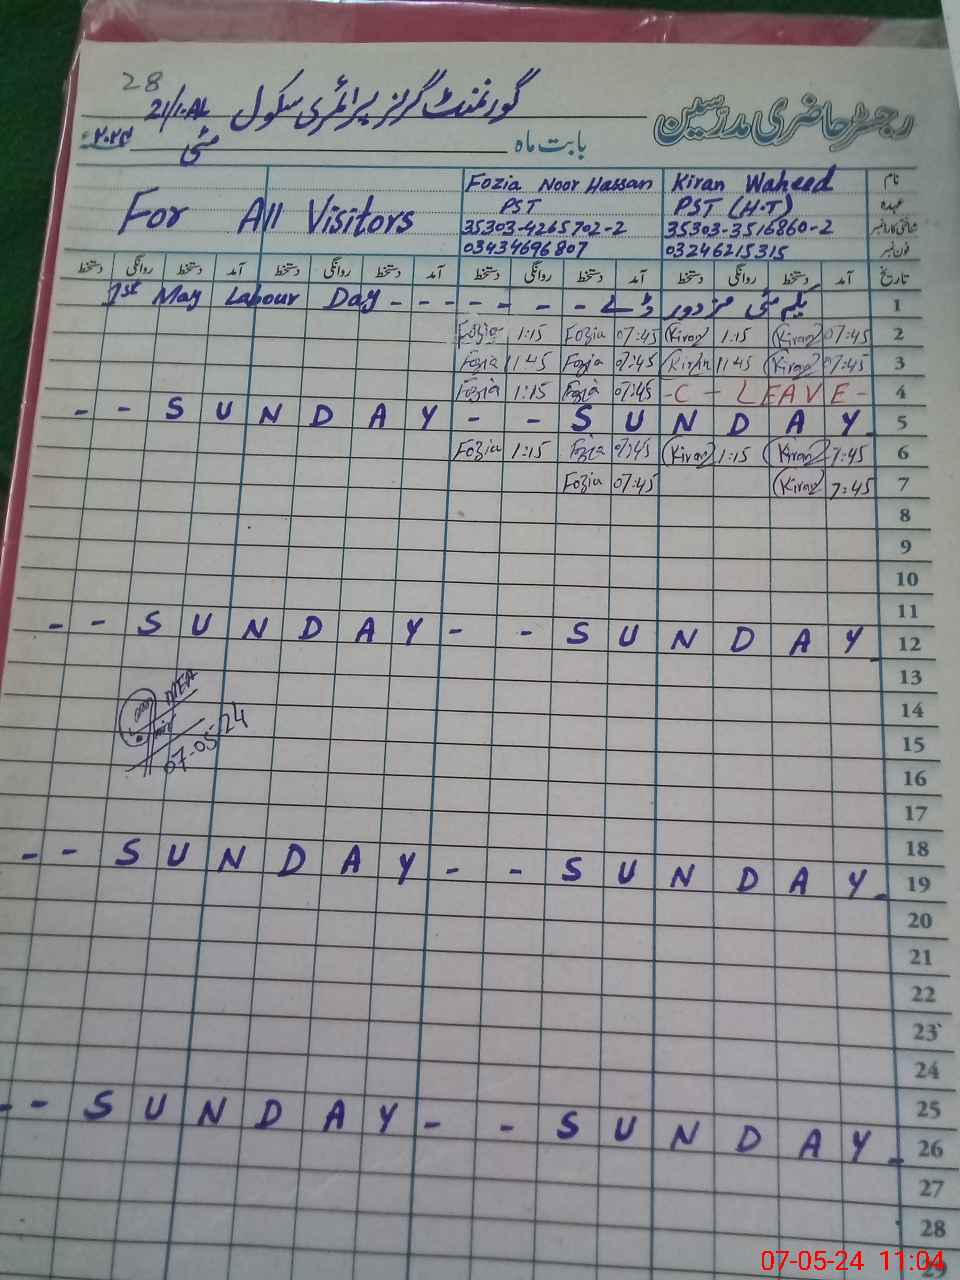 28
گورنمنٹ گرلز پرائمری سکول 21/1.AL
رجسٹر حاضری مدرسین
بابت ماہ مئی ۲۰۲۴ء
نام Kiran Waheed Fozia Noor Hassan
عہدہ PST (H.T) PST
For All Visitors
شناختی کارڈ نمبر 35303-3516860-2 35303-4265702-2
فون نمبر 03246215315 03434696807
تاریخ آمد دستخط روانگی دستخط آمد دستخط روانگی دستخط آمد دستخط روانگی دستخط آمد دستخط روانگی دستخط
1st May Labour Day - - - - - - - یکم مئی مزدور ڈے 1
Fozia 1:15 Fozia 07:45 Kiran 1:15 Kiran 07:45 2
Fozia 11:45 Fozia 07:45 Kiran 11:45 Kiran 07:45 3
Fozia 1:15 Fozia 07:45 - C - LEAVE - 4
- - S U N D A Y - - S U N D A Y - 5
Fozia 1:15 Fozia 07:45 Kiran 1:15 Kiran 7:45 6
Fozia 07:45 Kiran 7:45 7
8
9
10
11
- - S U N D A Y - - S U N D A Y - 12
13
14
15
16
17
18
- - S U N D A Y - - S U N D A Y - 19
20
21
22
23
24
25
- - S U N D A Y - - S U N D A Y - 26
27
28
29
07-05-24
07-05-24 11:04